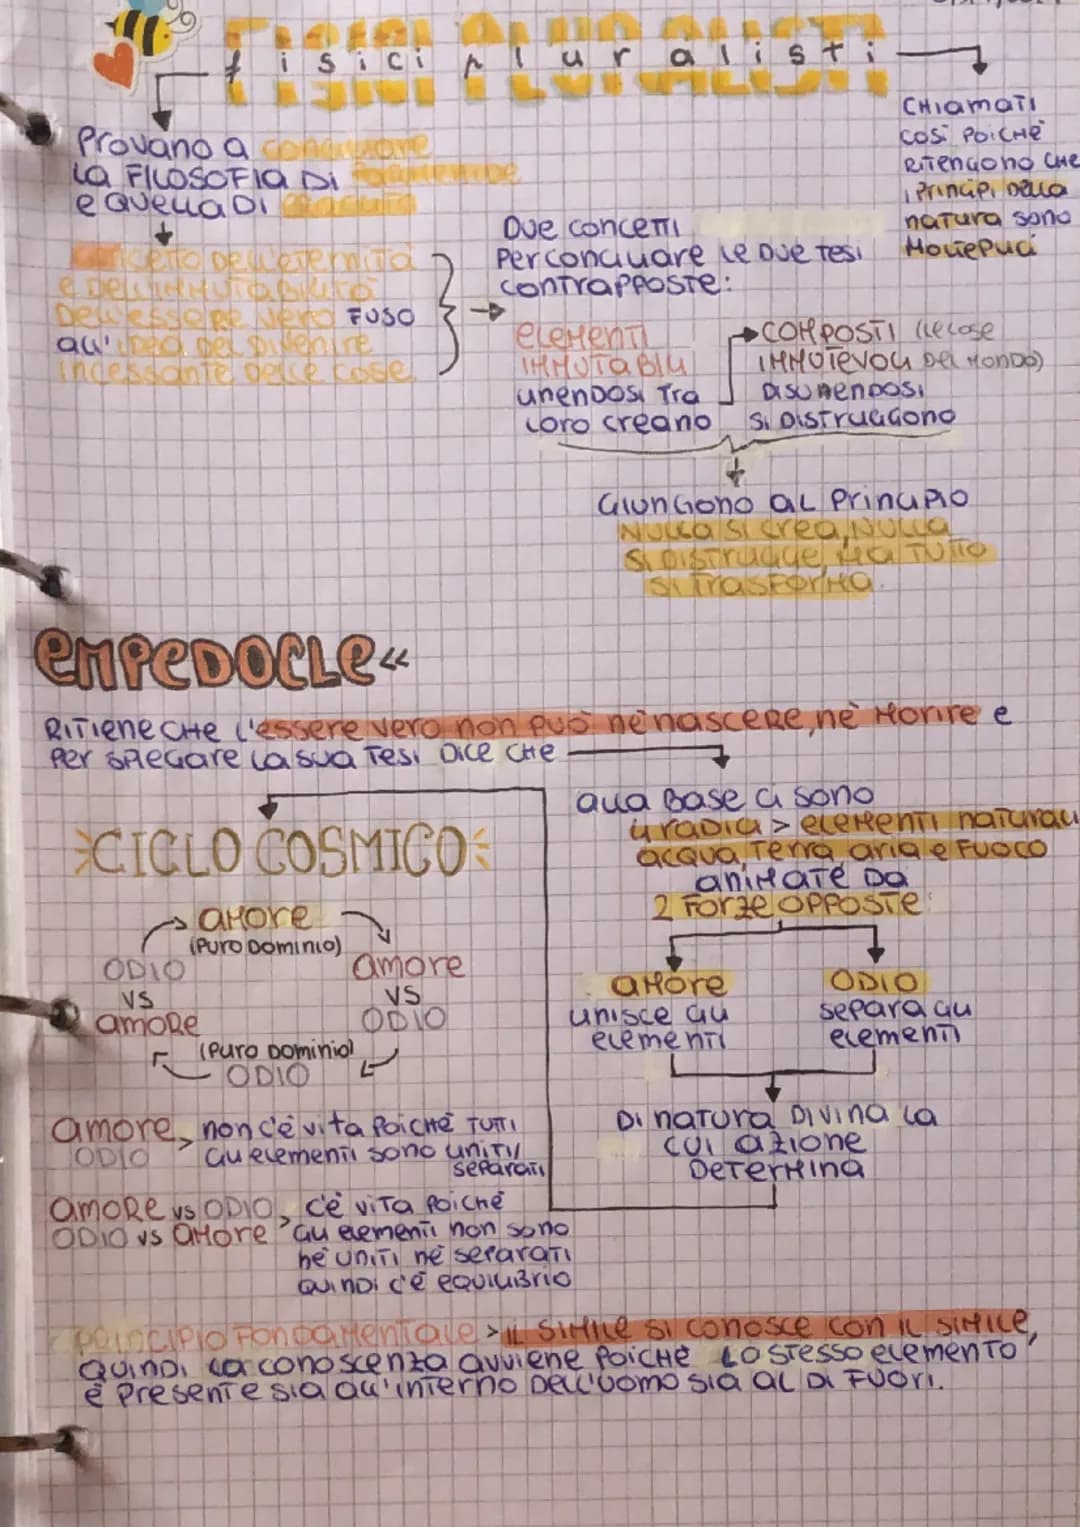 FISICI PLURALISTI
fisici pluralisti
CHiamaTi
cosi POICHè
RiTengono CHE
i Principi Della
natura sono
MolTepLici
Provano a conciliare
La FILOSOFIA Di Parmenide
e quella Di eraclito
concetto Dell'eternità
e Dell'immutabilità
Dell'essere vero FUSO
all'idea Del Divenire
incessante Delle cose
Due concetti
Per conciliare le Due Tesi
contrapposte:
elementi
immutabili
unendosi Tra
Loro creano
COMPOSTI (le cose
immutevoli Del Mondo)
Disunendosi
si Distruggono
Giungono al Principio
Nulla si crea, Nulla
si Distrugge, Ma Tutto
si Trasforma.
EMPEDOCLE «
Ritiene che l'essere vero non può nè nascere, nè Morire e
Per spiegare la sua Tesi Dice che
alla Base ci sono
4 radici > elementi naturali
acqua, Terra, aria e Fuoco
animate Da
2 Forze opposte:
amore
unisce gli
elementi
ODIO
separa gli
elementi
Di natura Divina la
cui azione
Determina
CICLO COSMICO
amore
(Puro Dominio)
amore
vs
ODIO
(Puro Dominio)
ODIO
ODIO
vs
amore
amore
ODIO > non c'è vita Poichè TuTTi
gli elementi sono uniti/
separati
amore vs ODIO
ODIO vs amore > c'è vita Poichè
gli elementi non sono
nè uniti nè separati
quindi c'è equilibrio
Principio Fondamentale > il simile si conosce con il simile,
quindi la conoscenza avviene Poichè lo stesso elemento
è Presente sia all'interno Dell'uomo sia al Di Fuori.